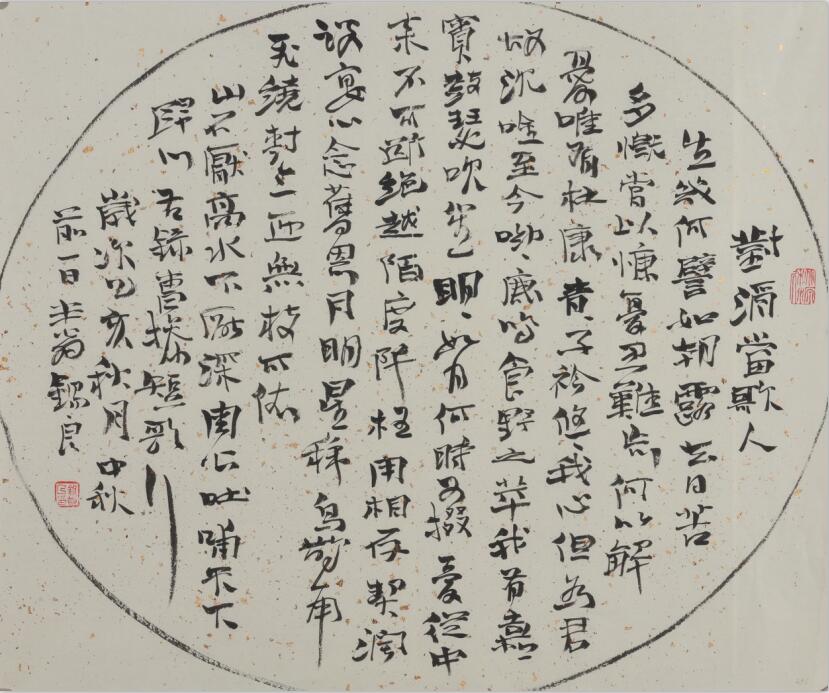 對酒當歌人
生幾何譬如朝露去日苦
多慨當以慷憂思難忘何以解
憂唯有杜康青、子衿悠、我心但為君
故沉吟至今呦、鹿鳴食野之苹我有嘉
賓鼓瑟吹笙明、如月何時可掇憂從中
來不可斷絕越陌度阡枉用相存契闊
談宴心念舊恩月明星稀烏鵲南
飛繞樹三匝無枝可依
山不厭高水不厭深周公吐哺天下
歸心 右錄曹操短歌行
歲次己亥秋月中秋
前一日 翁錫良